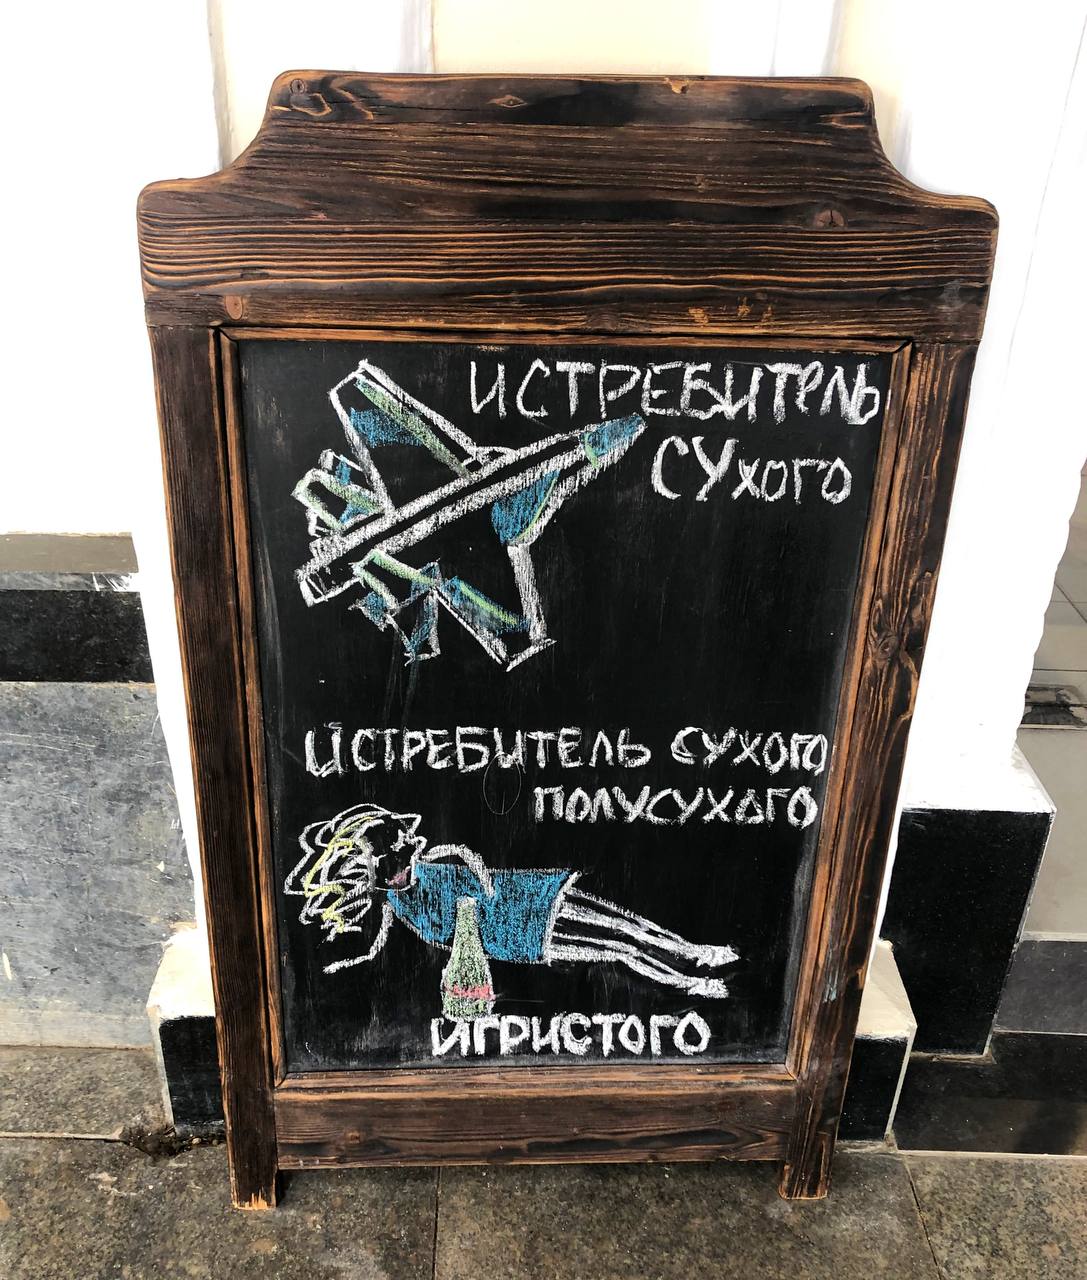 ИСТРЕБИТЕЛЬ
СУХОГО
ИСТРЕБИТЕЛЬ СУХОГО
ПОЛУСУХОГО
ИГРИСТОГО